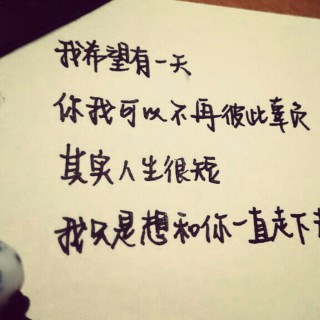 我希望有一天
你我可以不再彼此辜负
其实人生很短
我只是想和你一直走下